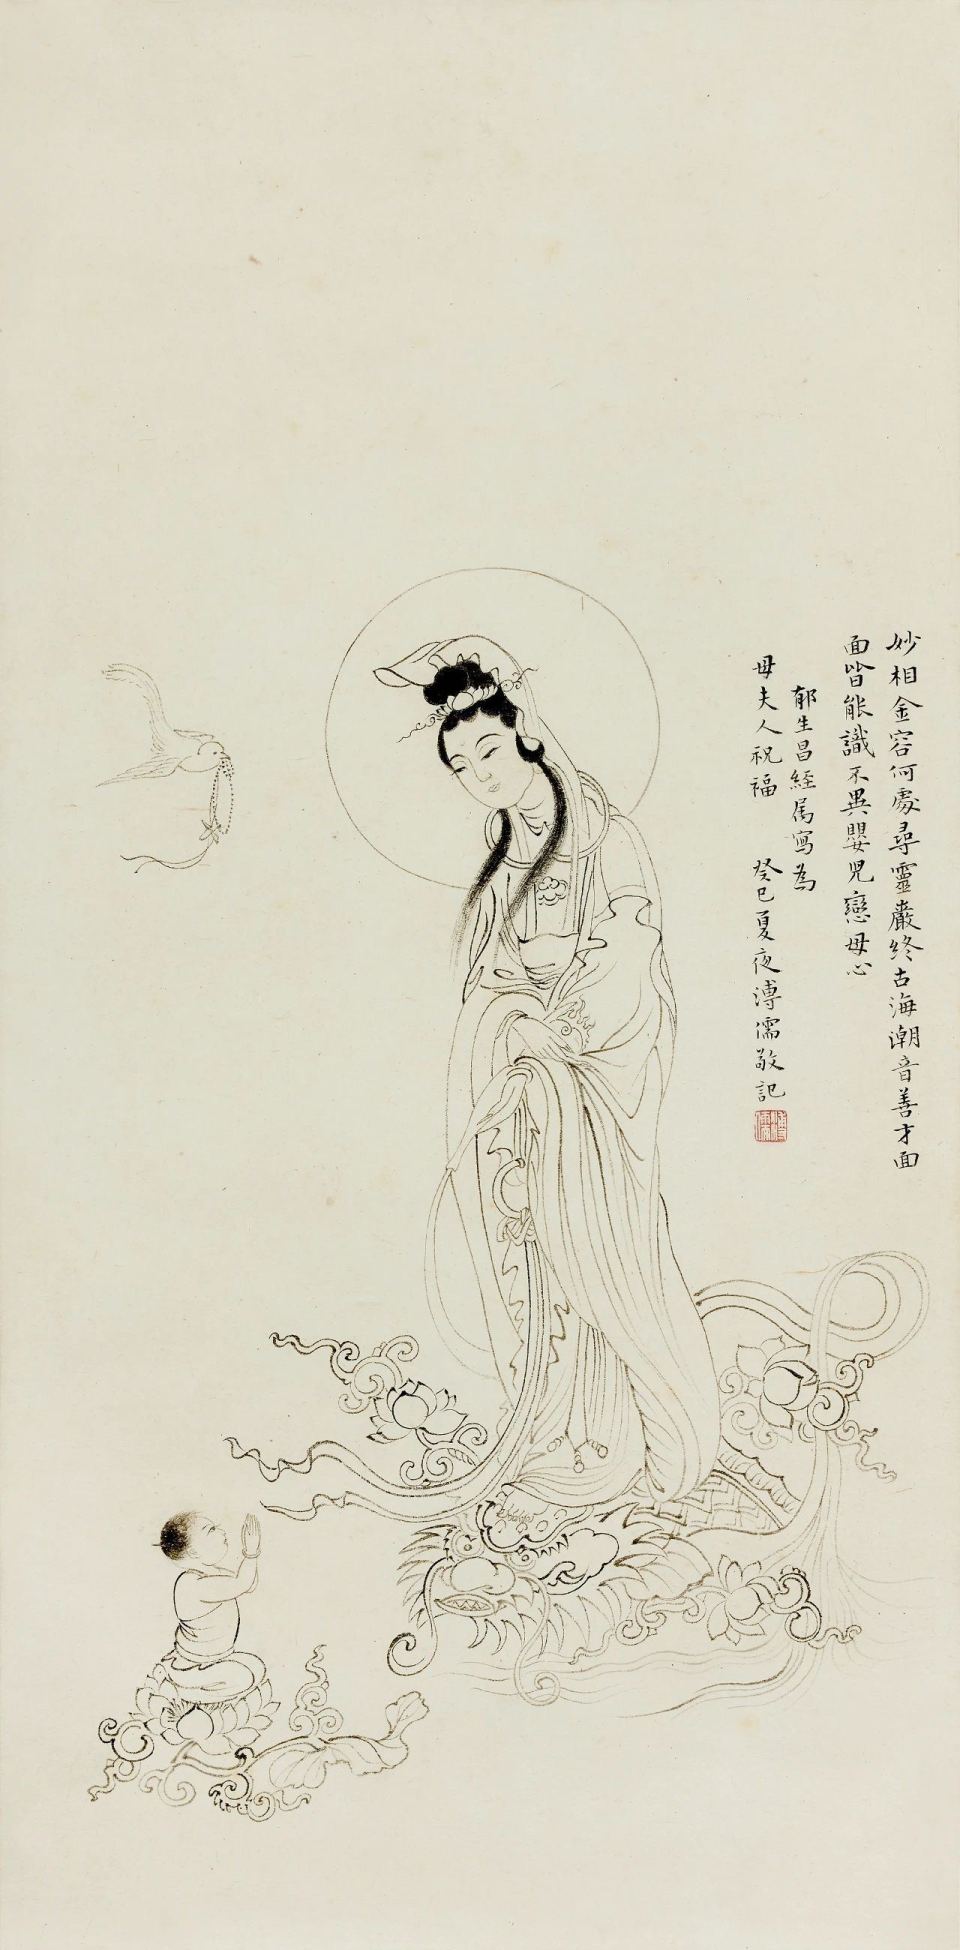 妙相金容何處尋靈巖終古海潮音善才面
面皆能識不異嬰兒戀母心
郁生昌經属寫為
母夫人祝福　癸巳夏夜溥儒敬記
溥儒